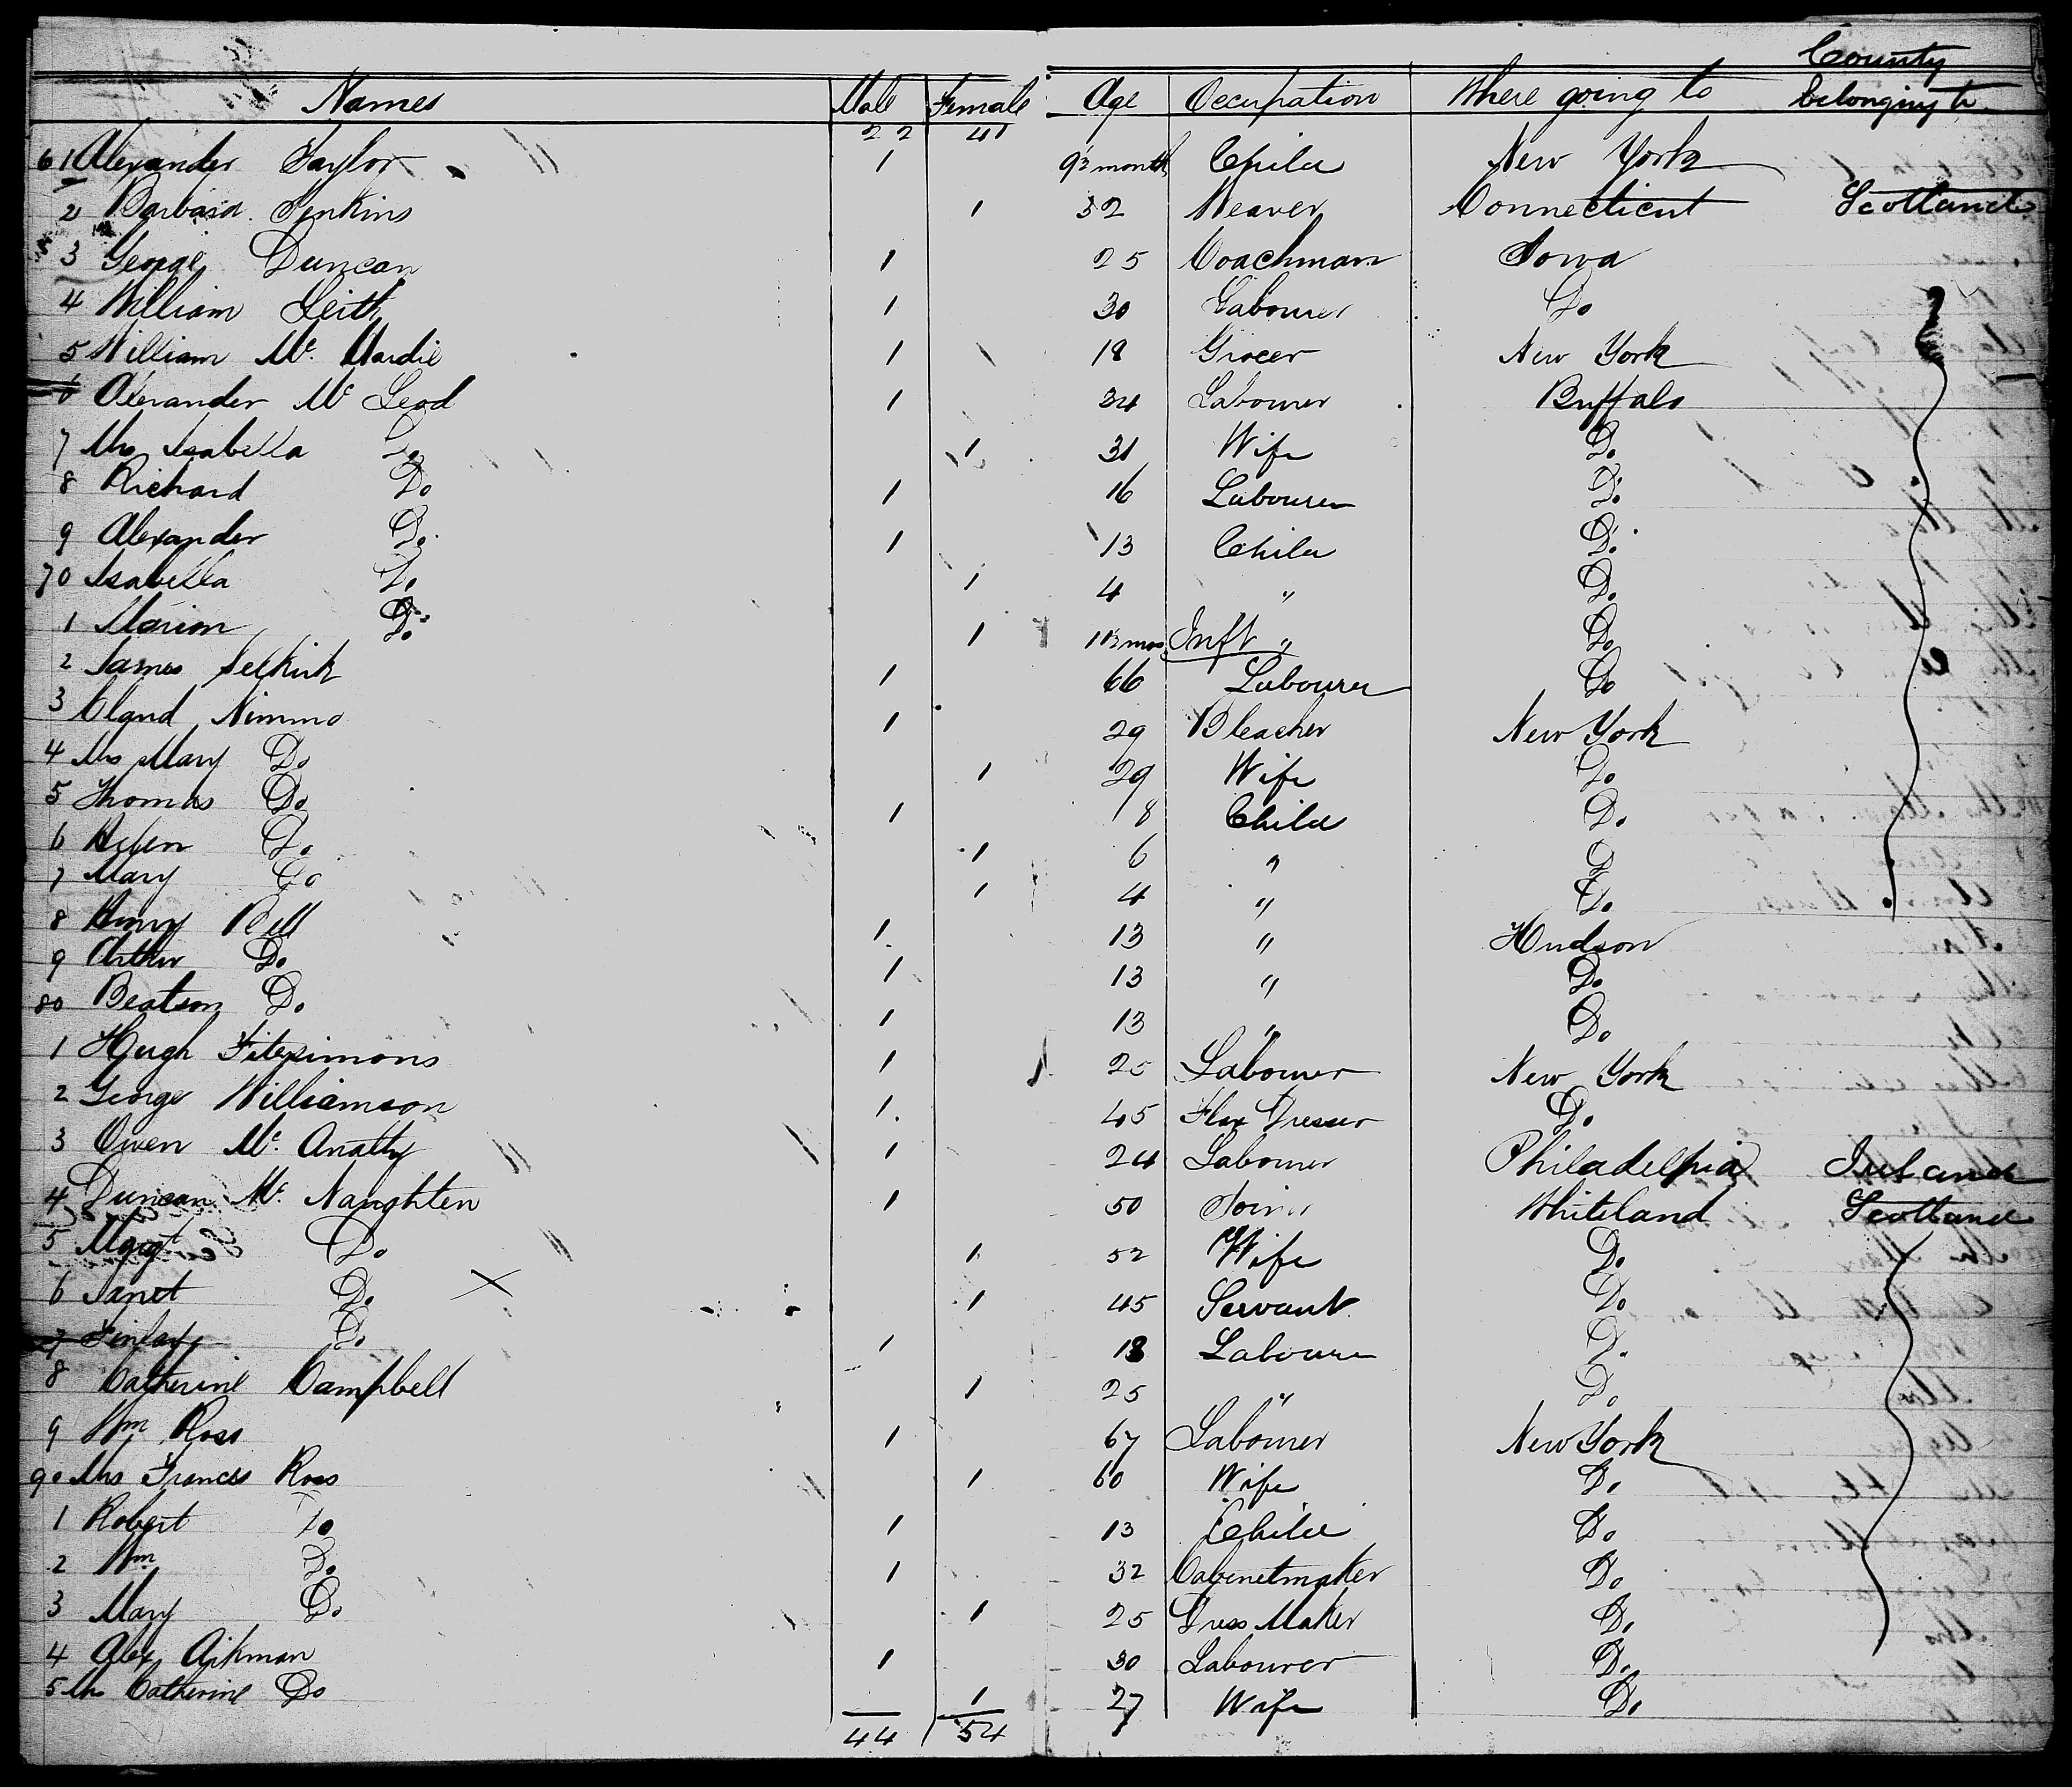 County
Names Male Female Age Occupation Where going to belonging to
22 41
61 Alexander Taylor 1 9½ month Child New York
2 Barbara Jenkins 1 32 Weaver Connecticut Scotland
3 George Duncan 1 25 Coachman Iowa
4 William Leith 1 30 Labourer Do
5 William Mc. Hardie 1 18 Grocer New York
6 Alexander Mc Leod 1 34 Labourer Buffalo
7 Mrs Isabella Do 1 31 Wife Do
8 Richard Do 1 16 Labourer Do
9 Alexander Do. 1 13 Child Do
70 Isabella Do 1 4 " Do
1 Marion Do 1 11½ mos Inft " Do
2 James Selkirk 1 66 Labourer Do
3 Cland Nimmo 1 29 Bleacher New York
4 Mrs Mary Do 1 29 Wife Do
5 Thomas Do 1 8 Child Do
6 Helen Do 1 6 " Do
7 Mary Do 1 4 " Do
8 Henry Bell 1 13 " Hudson
9 Arthur Do 1 13 " Do
80 Beatson Do 1 13 " Do
1 Hugh Fitzsimons 1 25 Labourer New York
2 George Williamson 1 45 Flax Dresser Do
3 Owen Mc. Anathy 1 24 Labourer Philadelphia Ireland
4 Duncan Mc. Naughten 1 50 Joiner Whiteland Scotland
5 Margt Do 1 52 Wife Do
6 Janet Do 1 45 Servant Do
7 Finlay Do 1 18 Labourer Do
8 Catherine Campbell 1 25 " Do
9 Wm Ross 1 67 Labourer New York
90 Mrs Frances Ross 1 60 Wife Do
1 Robert Do 1 13 Child Do
2 Wm Do 1 32 Cabinetmaker Do
3 Mary Do 1 25 Dress Maker Do
4 Alex Aikman 1 30 Labourer Do
5 Mrs Catherine Do 1 27 Wife Do
44 54